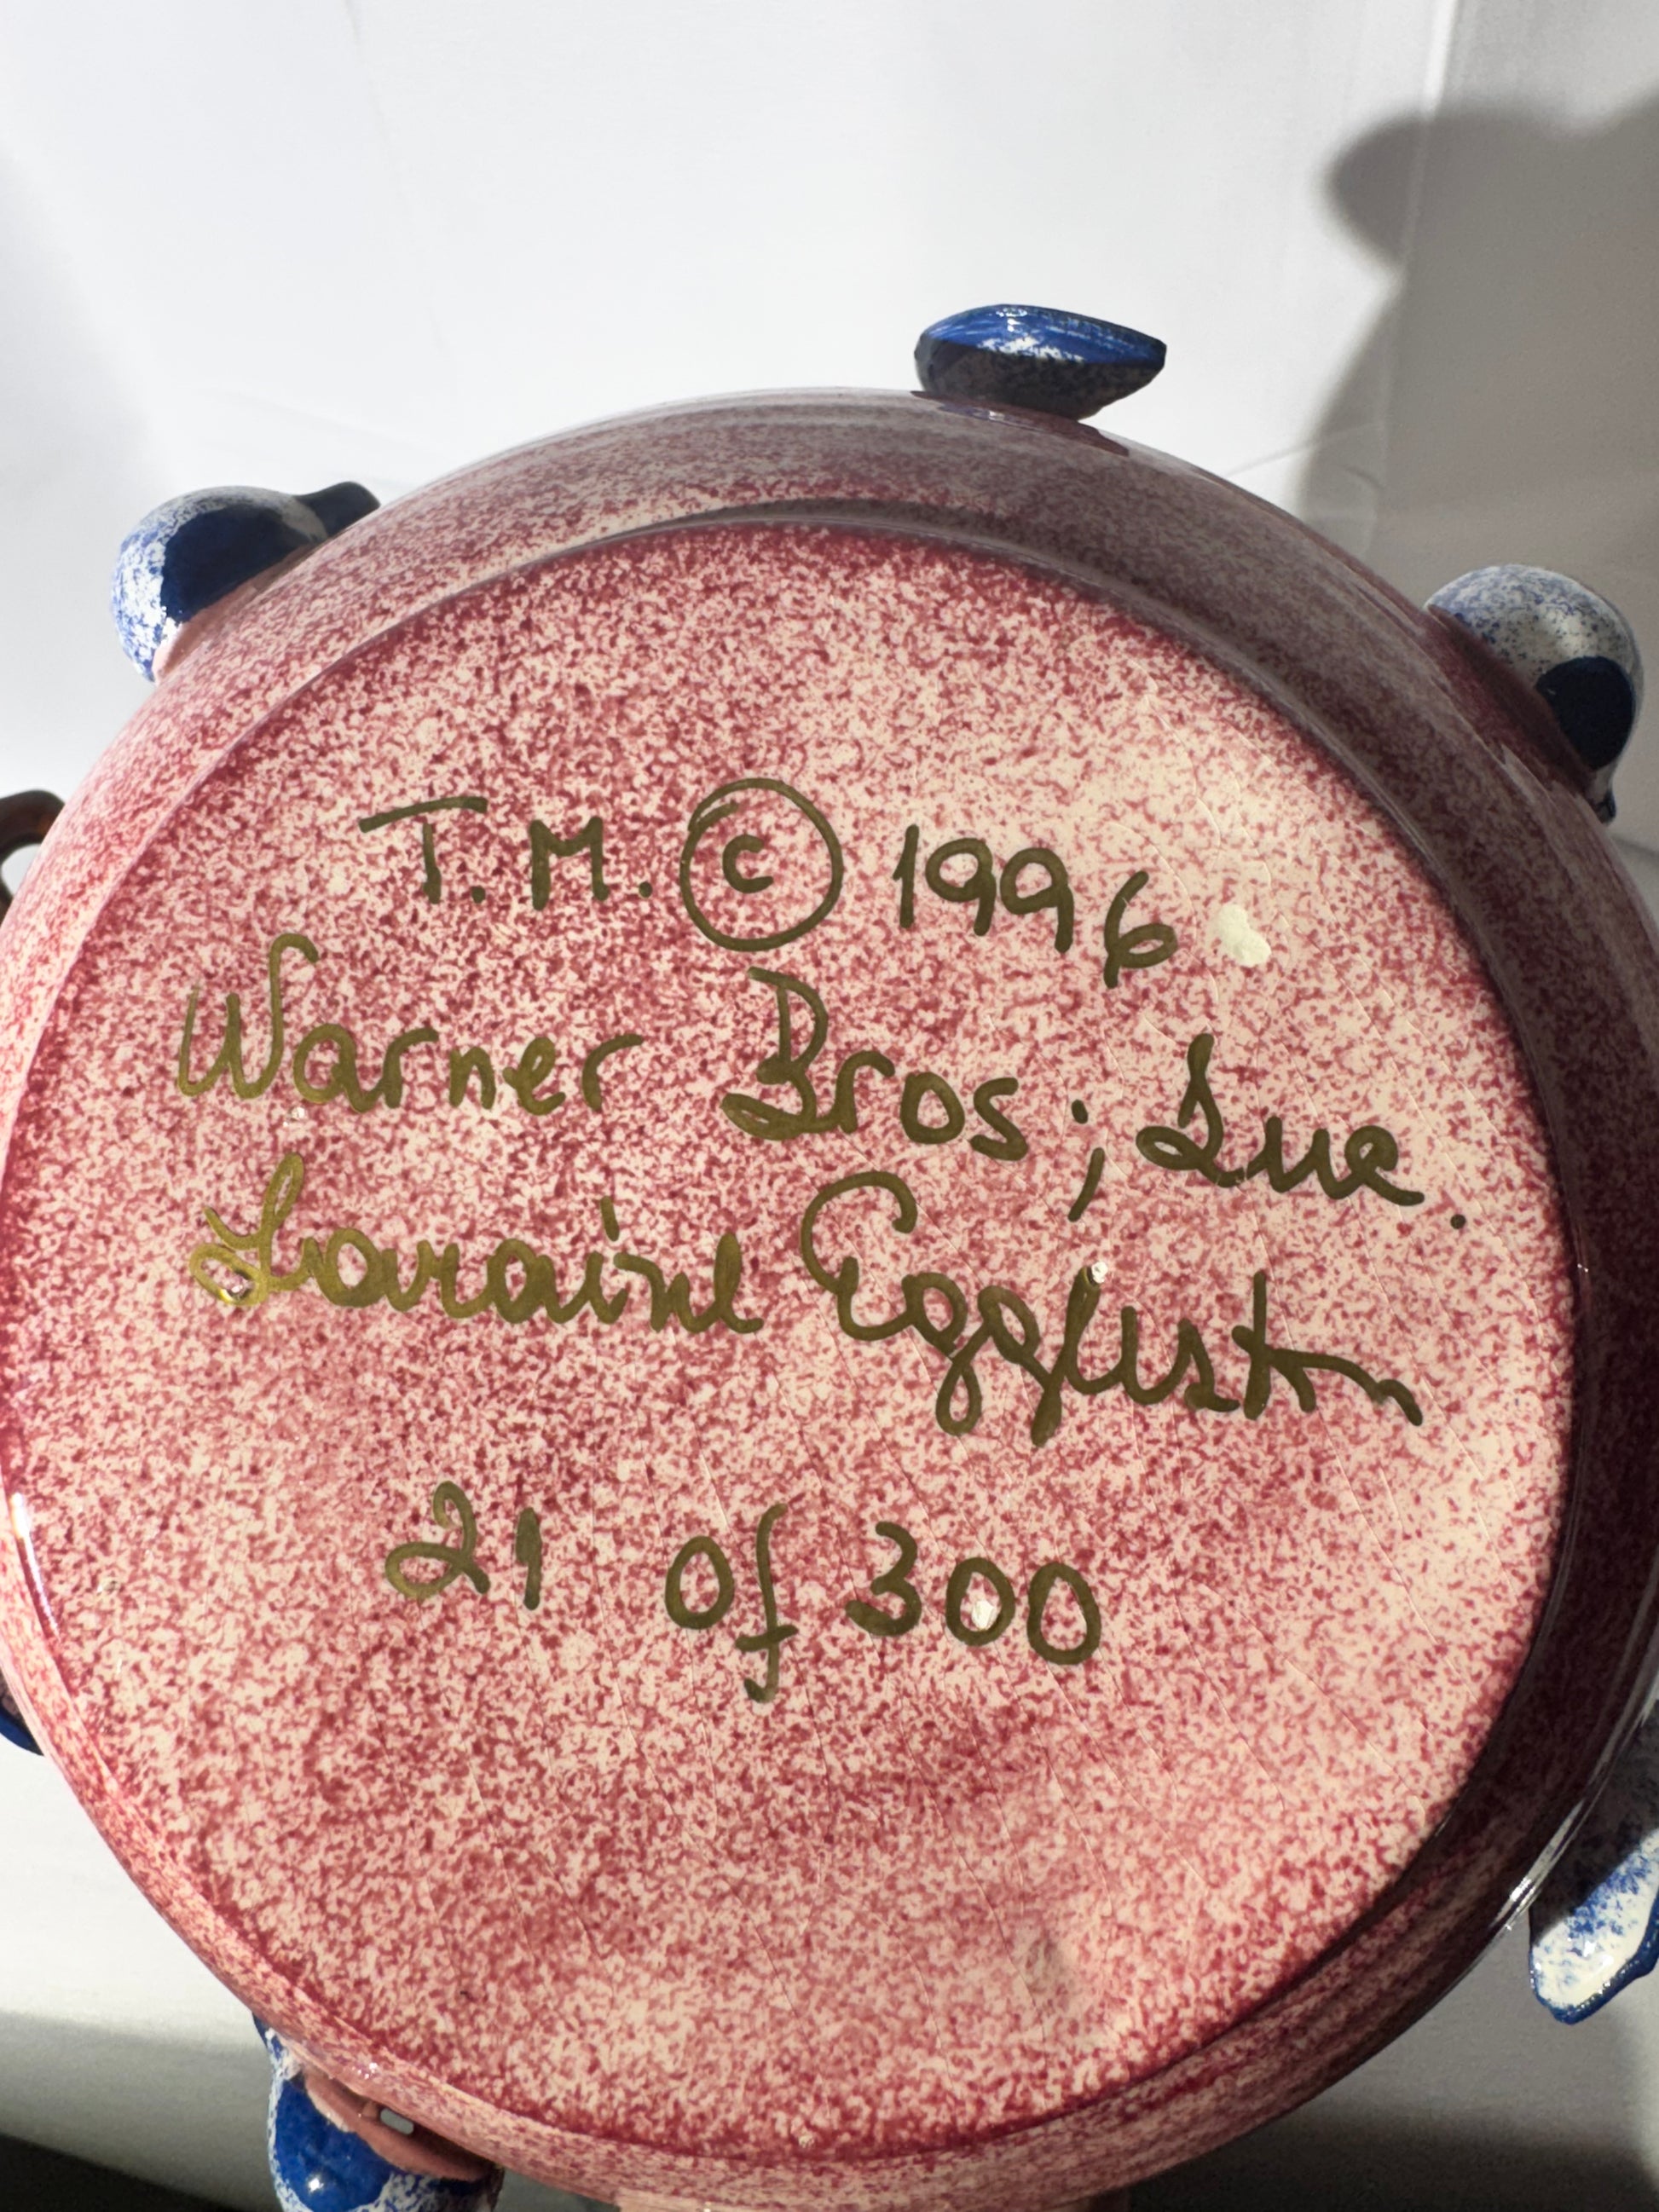 T.M. © 1996
Warner Bros; Inc.
Loraine Eggleston
21 of 300